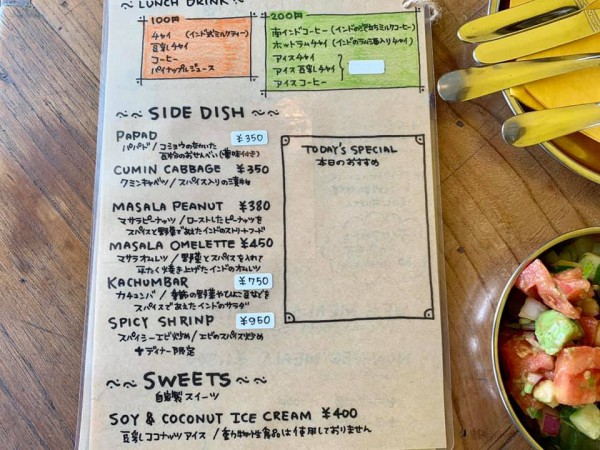 LUNCH DRINK
100円
チャイ (インド式ミルクティー)
豆乳チャイ
コーヒー
パイナップルジュース
200円
南インドコーヒー (インドの泡立ちミルクコーヒー)
ホットラムチャイ (インドのラム酒入りチャイ)
アイスチャイ
アイス豆乳チャイ
アイスコーヒー
~~ SIDE DISH ~~
PAPAD ¥350
パパド / コショウの効いた
豆粉のおせんべい (薬味付き)
CUMIN CABBAGE ¥350
クミンキャベツ / スパイス入りの浅漬け
MASALA PEANUT ¥380
マサラピーナッツ / ローストしたピーナッツを
スパイスと野菜であえたインドのストリートフード
MASALA OMELETTE ¥450
マサラオムレツ / 野菜とスパイスを入れて
平たく焼き上げたインドのオムレツ
KACHUMBAR ¥750
カチュンバ / 季節の野菜やひよこ豆などを
スパイスであえたインドのサラダ
SPICY SHRIMP ¥950
スパイシーエビ炒め / エビのスパイス炒め
+ディナー限定
TODAY'S SPECIAL
本日のおすすめ
~~ SWEETS ~~
自家製スイーツ
SOY & COCONUT ICE CREAM ¥400
豆乳ココナッツアイス / 動物性食品は使用しておりません